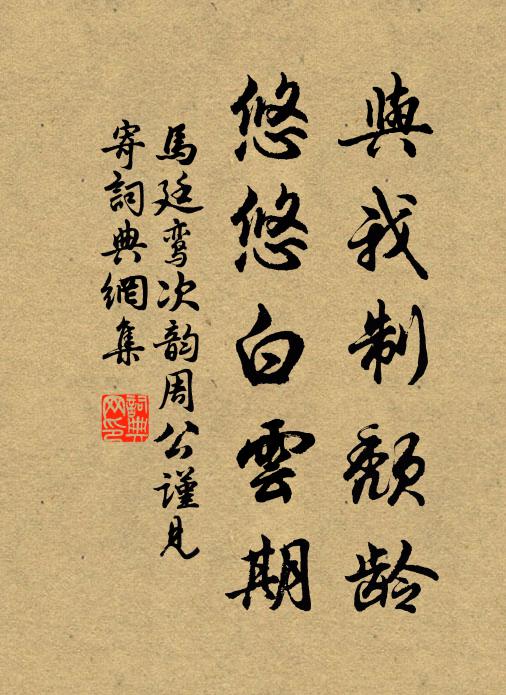 與我制頹齡
悠悠白雲期
馬廷鸞次韵周公謹見
寄詞典網集
詞典網印